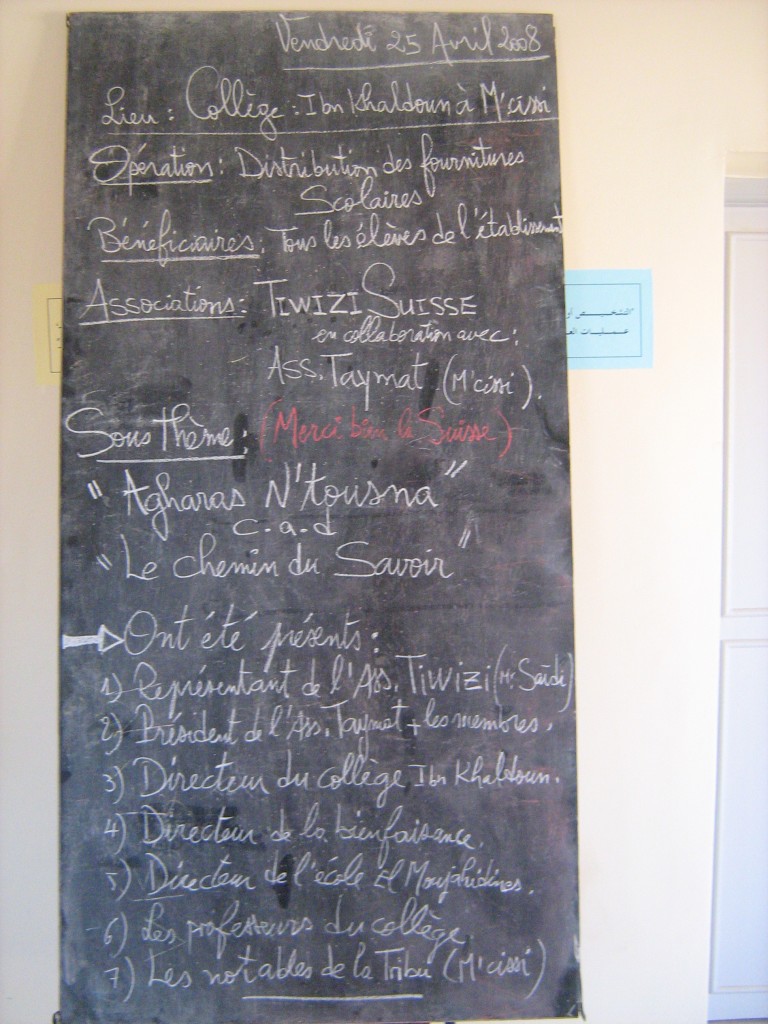 Vendredi 25 Avril 2008
Lieu : Collège : Ibn Khaldoun à M'cissi
Opération : Distribution des fournitures
Scolaires
Bénéficiaires : Tous les élèves de l'établissement
Associations : TIWIZI SUISSE
en collaboration avec :
Ass. Taymat (M'cissi).
Sous thème : (Merci bien la Suisse)
" Agharas N'tousna "
c-a-d
" Le chemin du Savoir "
Ont été présents :
1) Représentant de l'Ass. TIWIZI (Mr Saïdi)
2) Président de l'Ass. Taymat + les membres.
3) Directeur du collège Ibn Khaldoun.
4) Directeur de la bienfaisance.
5) Directeur de l'école El Moujahidines.
6) Les professeurs du collège
7) Les notables de la Tribu (M'cissi)
التشخيص أو
عمليات